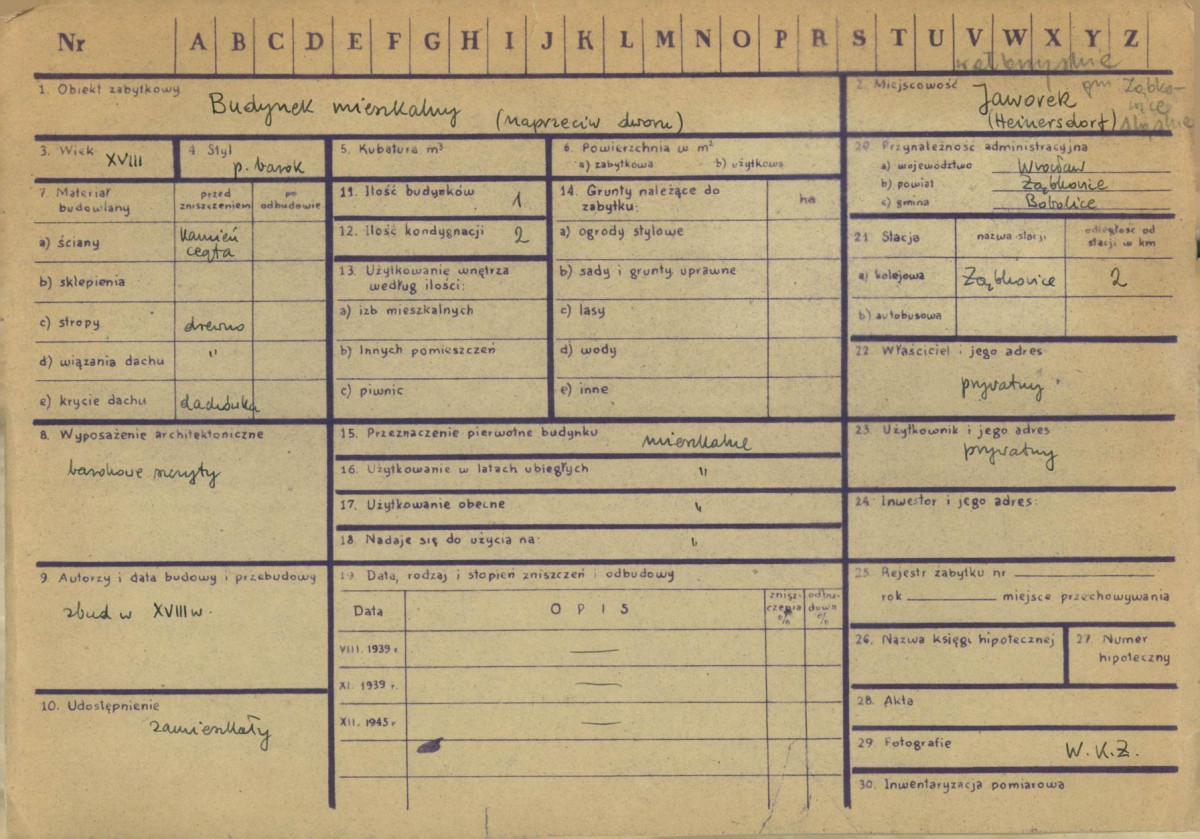 Nr A B C D E F G H I J K L M N O P R S T U V W X Y Z
1. Obiekt zabytkowy
Budynek mieszkalny (naprzeciw dworu)
2. Miejscowość
gm Ząbko-
wice
Śląskie
Jaworek
(Heinersdorf)
3. Wiek XVIII
4. Styl p. barok
5. Kubatura m³
6. Powierzchnia w m²
a) zabytkowa b) użytkowa
7. Materiał budowlany
przed zniszczeniem
po odbudowie
a) ściany kamień
cegła
b) sklepienia
c) stropy drewno
d) wiązania dachu "
e) krycie dachu dachówka
11. Ilość budynków 1
12. Ilość kondygnacji 2
13. Użytkowanie wnętrza
według ilości:
a) izb mieszkalnych
b) Innych pomieszczeń
c) piwnic
14. Grunty należące do
zabytku: ha
a) ogrody stylowe
b) sady i grunty uprawne
c) lasy
d) wody
e) inne
20. Przynależność administracyjna
a) województwo Wrocław
b) powiat Ząbkowice
c) gmina Bobolice
21. Stacja nazwa stacji odległość od
stacji w km
a) kolejowa Ząbkowice 2
b) autobusowa
22. Właściciel i jego adres
prywatny
8. Wyposażenie architektoniczne
barokowe szczyty
15. Przeznaczenie pierwotne budynku mieszkalne
16. Użytkowanie w latach ubiegłych "
17. Użytkowanie obecne "
18. Nadaje się do użycia na: "
23. Użytkownik i jego adres
prywatny
24. Inwestor i jego adres:
9. Autorzy i data budowy i przebudowy
zbud w XVIII w.
19. Data, rodzaj i stopień zniszczeń i odbudowy
Data OPIS znisz-
czenia
% odbu-
dowy
%
VIII. 1939 r. —
XI. 1939 r. —
XII. 1945 r —
25. Rejestr zabytku nr
rok miejsce przechowywania
26. Nazwa księgi hipotecznej
27. Numer
hipoteczny
10. Udostępnienie
zamieszkały
28. Akta
29. Fotografie W.K.Z.
30. Inwentaryzacja pomiarowa